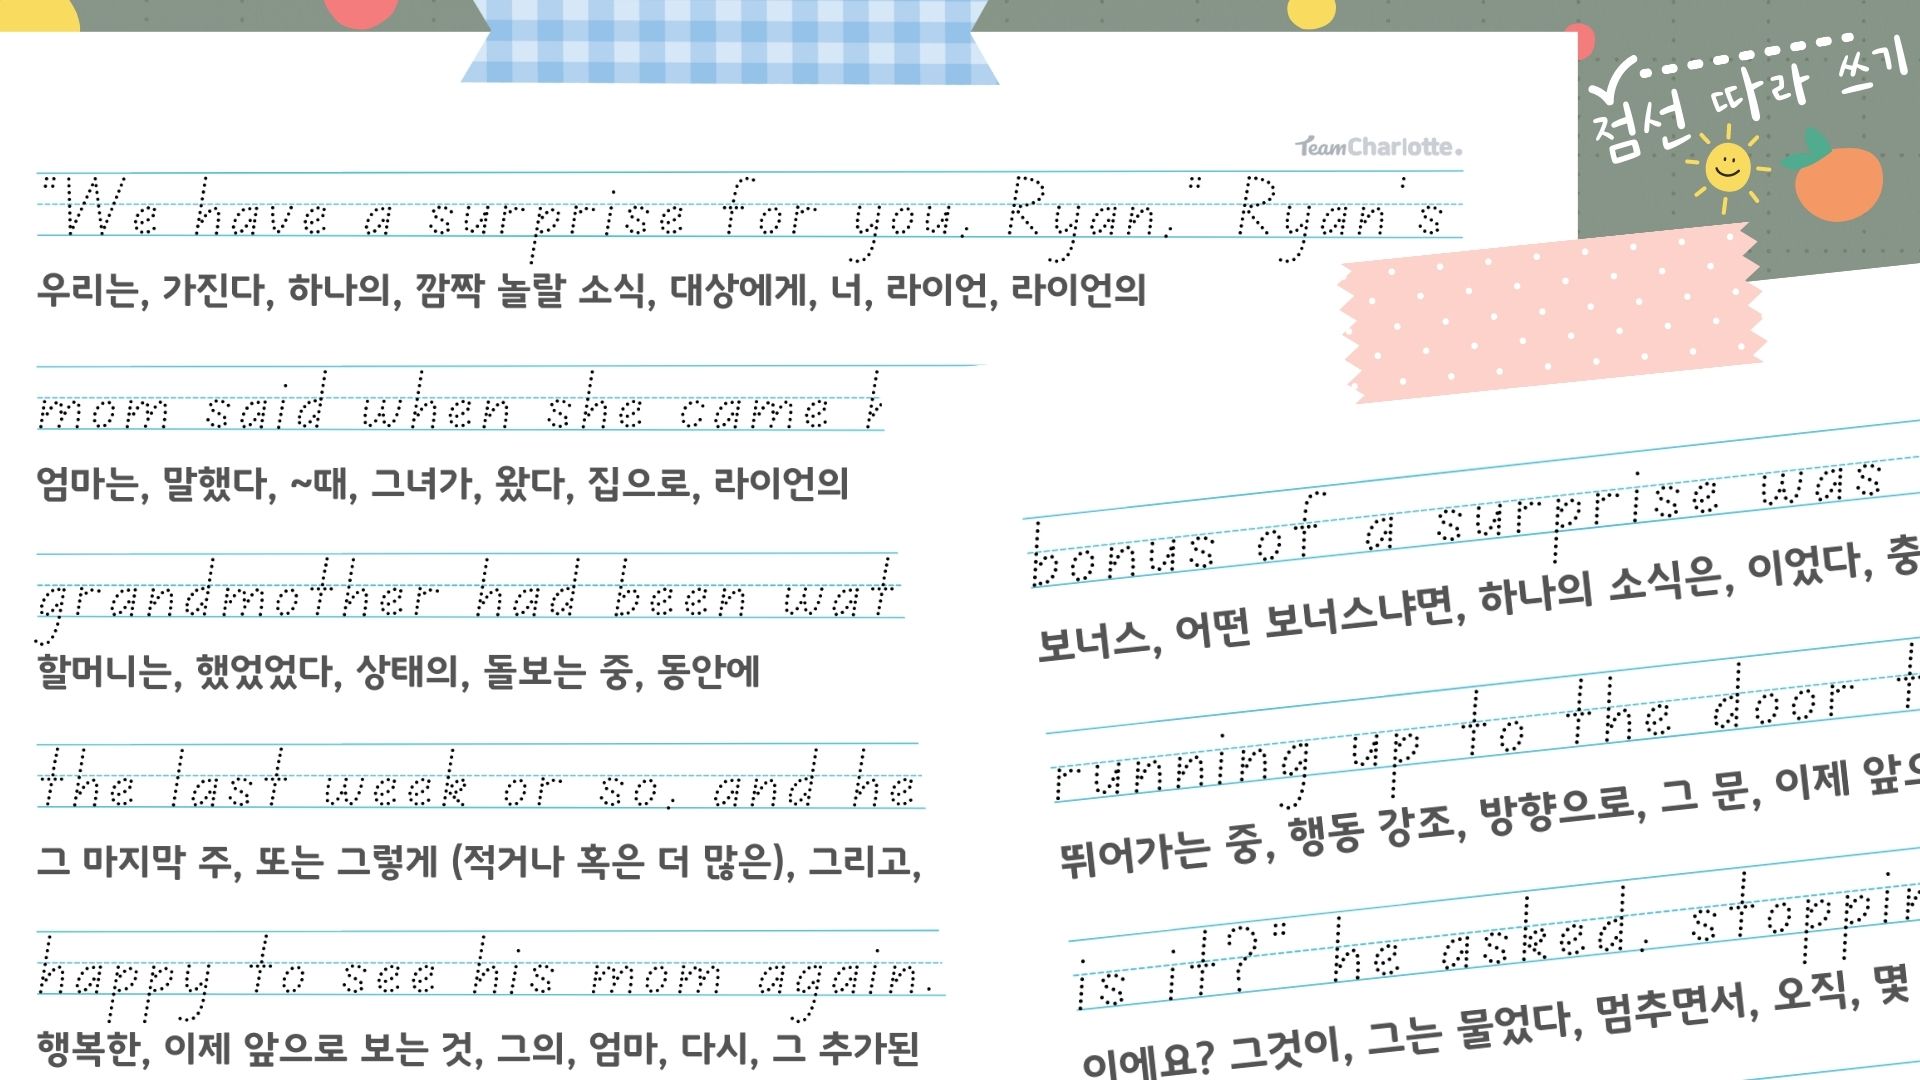 점선 따라 쓰기
TeamCharlotte.
"We have a surprise for you, Ryan." Ryan's
우리는, 가진다, 하나의, 깜짝 놀랄 소식, 대상에게, 너, 라이언, 라이언의
mom said when she came
엄마는, 말했다, ~때, 그녀가, 왔다, 집으로, 라이언의
grandmother had been wat
할머니는, 했었었다, 상태의, 돌보는 중, 동안에
the last week or so, and he
그 마지막 주, 또는 그렇게 (적거나 혹은 더 많은), 그리고,
happy to see his mom again.
행복한, 이제 앞으로 보는 것, 그의, 엄마, 다시, 그 추가된
bonus of a surprise was
보너스, 어떤 보너스냐면, 하나의 소식은, 이었다, 충
running up to the door t
뛰어가는 중, 행동 강조, 방향으로, 그 문, 이제 앞으
is it?" he asked, stoppin
이에요? 그것이, 그는 물었다, 멈추면서, 오직, 몇